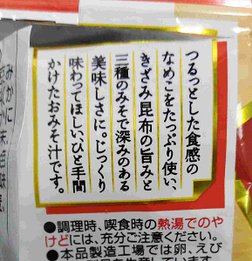 つるっとした食感の
なめこをたっぷり使い、
きざみ昆布の旨みと
三種のみそで深みのある
美味しさに。じっくり
味わってほしい、ひと手間
かけたおみそ汁です。
●調理時、喫食時の熱湯でのや
けどには、充分ご注意ください。
●本品製造工場では卵、えび